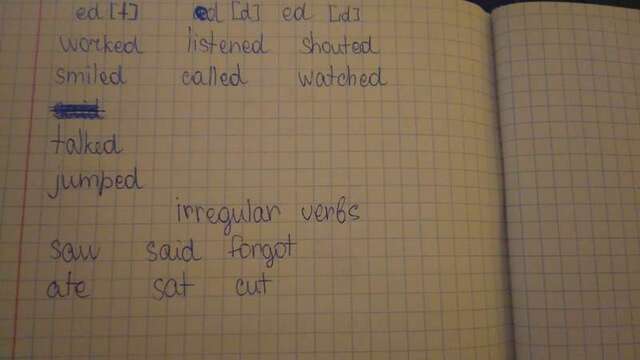 ed [t] ed [d] ed [id]
worked listened shouted
smiled called watched
talked
jumped
irregular verbs
saw said forgot
ate sat cut